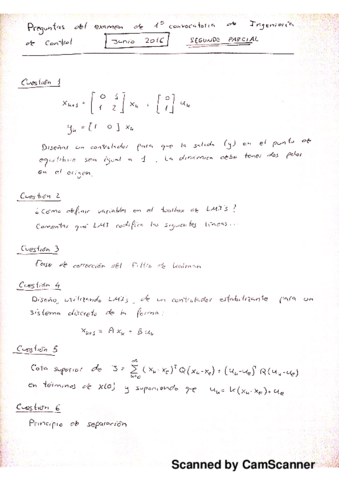 Preguntas del examen de 1ª convocatoria de Ingeniería
de Control Junio 2016 SEGUNDO PARCIAL
Cuestión 1
x_{k+1} = [0 1; 1 2] x_k + [0; 1] u_k
y_k = [1 0] x_k
Diseñar un controlador para que la salida (y) en el punto de
equilibrio sea igual a 1. La dinámica debe tener dos polos
en el origen.
Cuestión 2
¿Cómo definir variables en el toolbox de LMIs?
Comentar qué LMI codifica las siguientes líneas...
Cuestión 3
Fase de corrección del Filtro de Kalman
Cuestión 4
Diseño, utilizando LMIs, de un controlador estabilizante para un
sistema discreto de la forma:
x_{k+1} = A x_k + B u_k
Cuestión 5
Cota superior de J = Σ (x_k - x_e)^T Q (x_k - x_e) + (u_k - u_e)^T R (u_k - u_e)
en términos de x(0) y suponiendo que u_k = K(x_k - x_e) + u_e
Cuestión 6
Principio de separación
Scanned by CamScanner